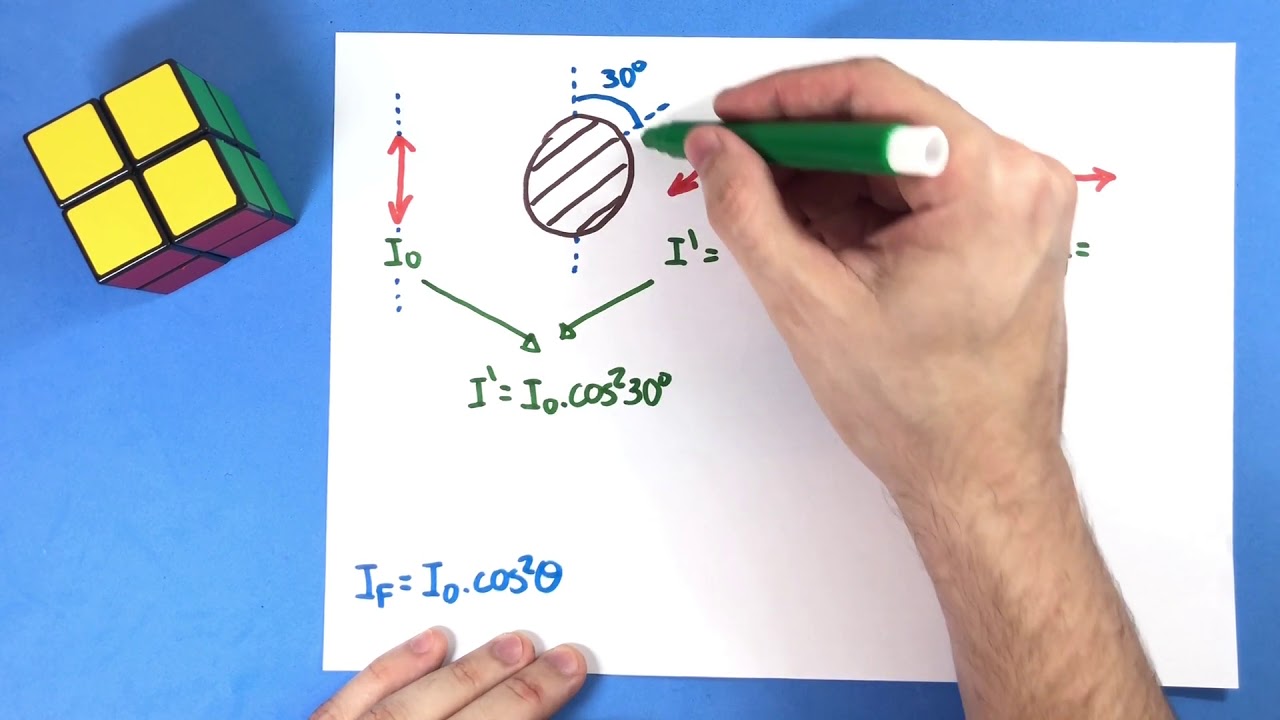 30°
I₀
I' =
=
I' = I₀.cos²30°
I_F = I₀.cos²θ